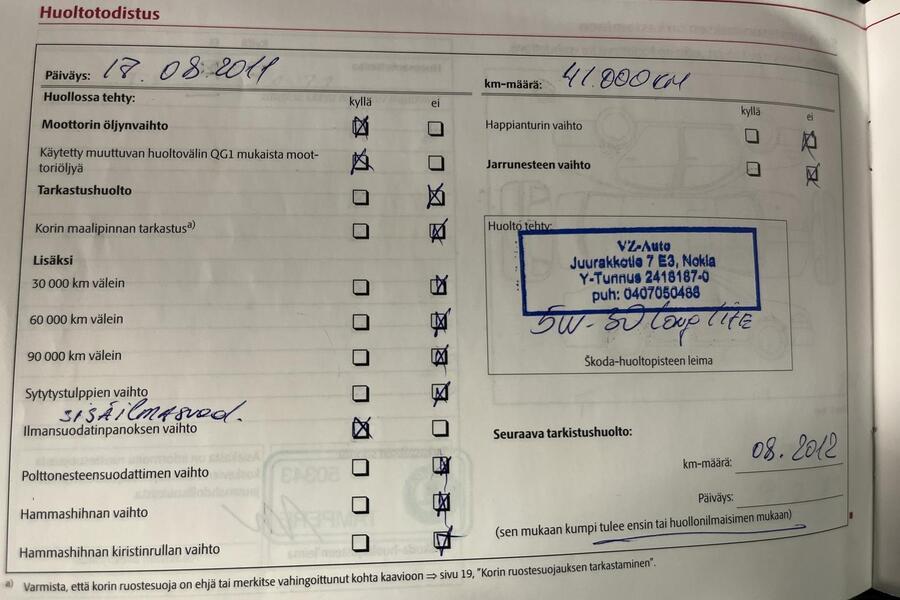 Huoltotodistus
Päiväys: 17.08.2011
km-määrä: 41.000 KM
Huollossa tehty:
kyllä ei
Moottorin öljynvaihto
Käytetty muuttuvan huoltovälin QG1 mukaista moot-
toriöljyä
Tarkastushuolto
Korin maalipinnan tarkastus a)
Lisäksi
30 000 km välein
60 000 km välein
90 000 km välein
Sytytystulppien vaihto
SISÄILMASUOD.
Ilmansuodatinpanoksen vaihto
Polttonesteensuodattimen vaihto
Hammashihnan vaihto
Hammashihnan kiristinrullan vaihto
kyllä ei
Happianturin vaihto
Jarrunesteen vaihto
Huolto tehty:
VZ-Auto
Juurakkotie 7 E3, Nokia
Y-Tunnus 2418187-0
puh: 0407050488
5W-30 long life
Škoda-huoltopisteen leima
Seuraava tarkistushuolto:
km-määrä: 08.2012
Päiväys:
(sen mukaan kumpi tulee ensin tai huollonilmaisimen mukaan)
a) Varmista, että korin ruostesuoja on ehjä tai merkitse vahingoittunut kohta kaavioon ⇒ sivu 19, "Korin ruostesuojauksen tarkastaminen".